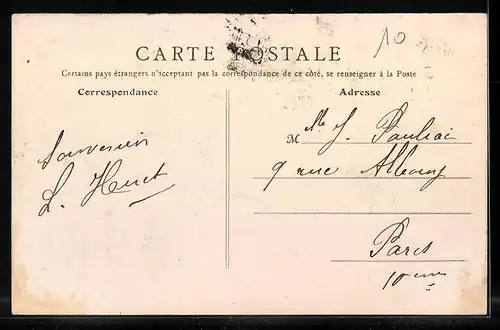 10
CARTE POSTALE
Certains pays étrangers n'acceptant pas la correspondance de ce côté, se renseigner à la Poste
Correspondance
Adresse
Souvenir
L. Huet
M Me J. Pauliac
9 rue Albouy
Paris
10eme